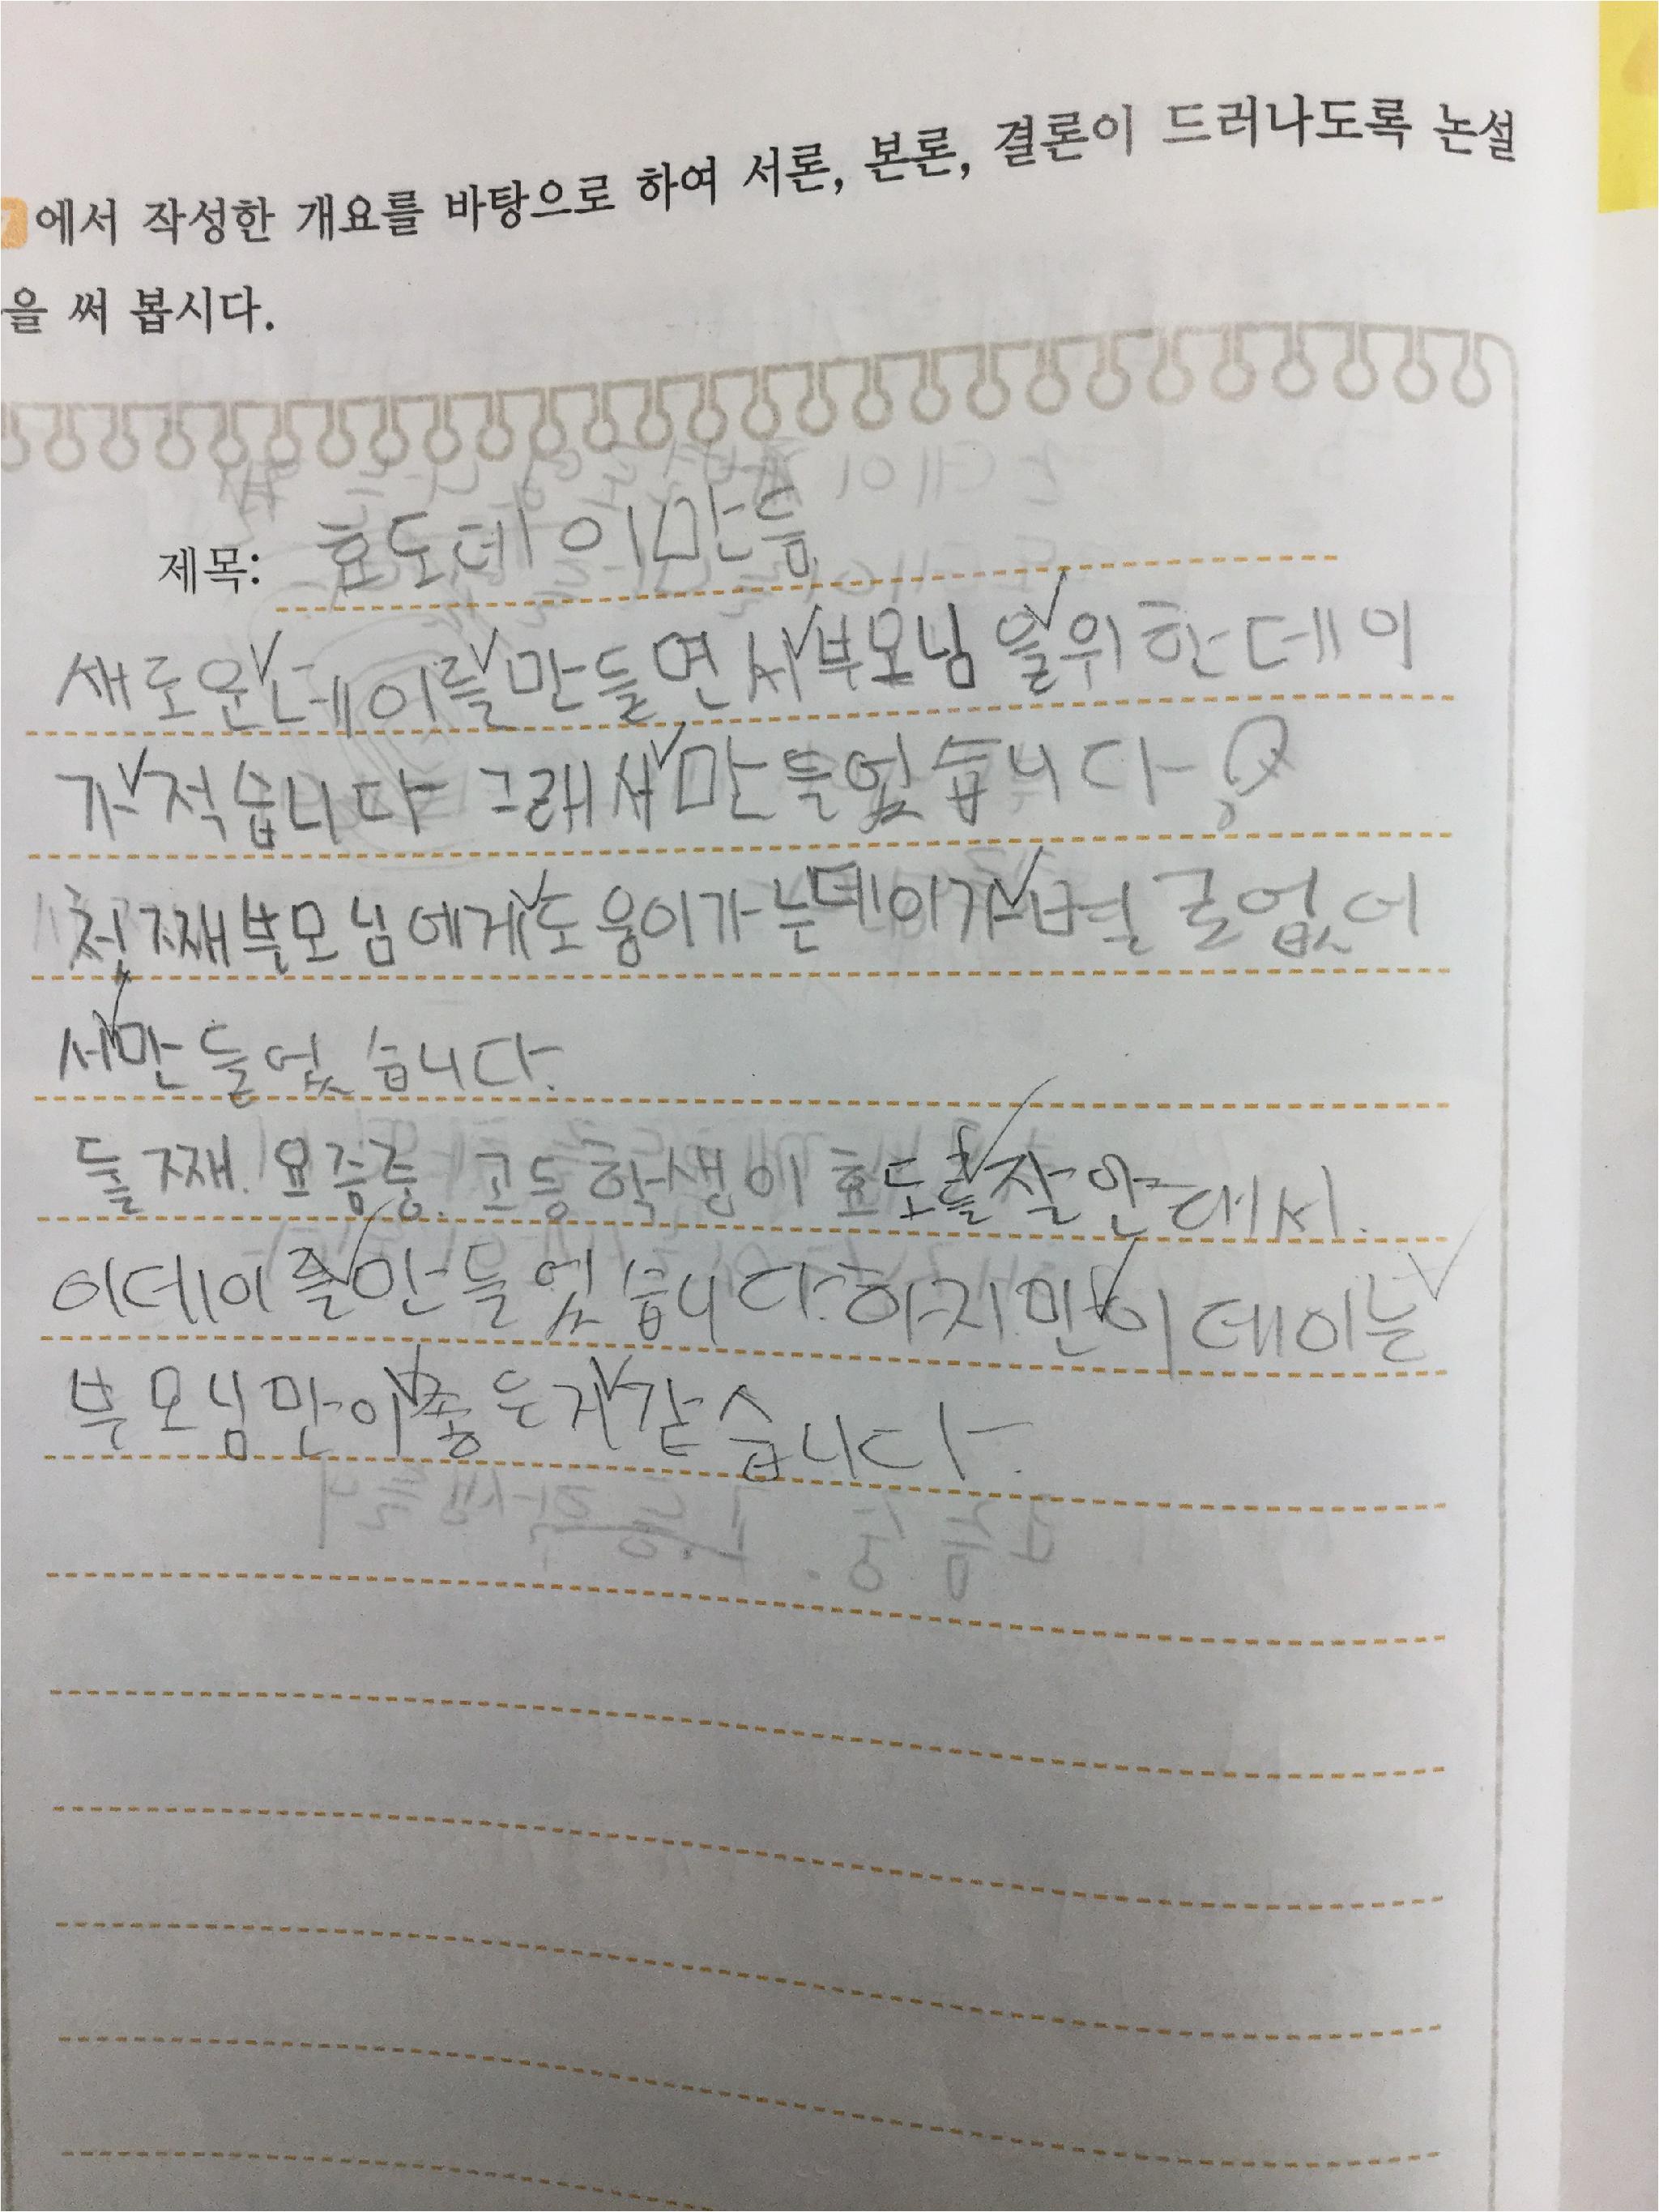 7에서 작성한 개요를 바탕으로 하여 서론, 본론, 결론이 드러나도록 논설
을 써 봅시다.
제목: 효도데이만듬
새로운데이를만들면서부모님을위한데이
가적습니다 그래서만들었습니다.
첫째부모님에게도움이가는데이가별로없어
서만들었습니다.
둘째. 요즘중.고등학생이효도를잘안해서.
이데이를만들었습니다.하지만이데이는
부모님만이좋은거같습니다.